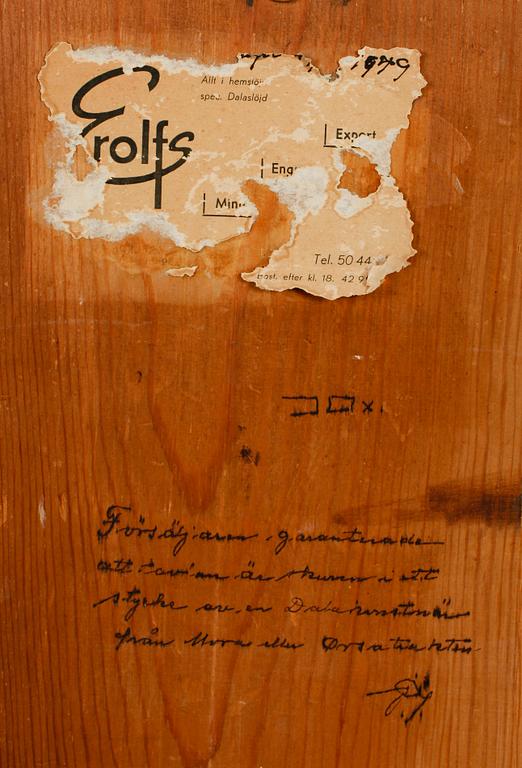 1949
Allt i hemslöj
spec. Dalaslöjd
Grolfs
Export
Eng
Min
Tel. 50 44
post. efter kl. 18. 42 9
Försäljaren garanterade
att tavlan är skuren i ett
stycke av en Dalakonstnär
från Mora eller Orsatrakten